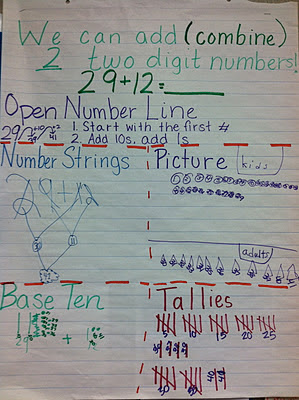 We can add (combine)
2 two digit numbers!
29+12=
Open Number Line
1. Start with the first #
2. Add 10s, add 1s
29 39 41
Number Strings
Picture
kids
29+12
adults
Base Ten
Tallies
5 10 15 20 25
29 +